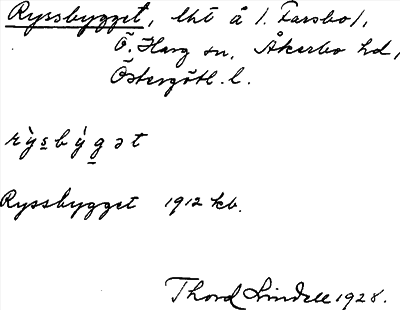 Ryssbygget, lht å /. Farsbo/,
Ö. Harg sn, Åkerbo hd,
Östergötl. l.
rỳsbýgət
Ryssbygget 1912 kb.
Thord Lindell 1928.